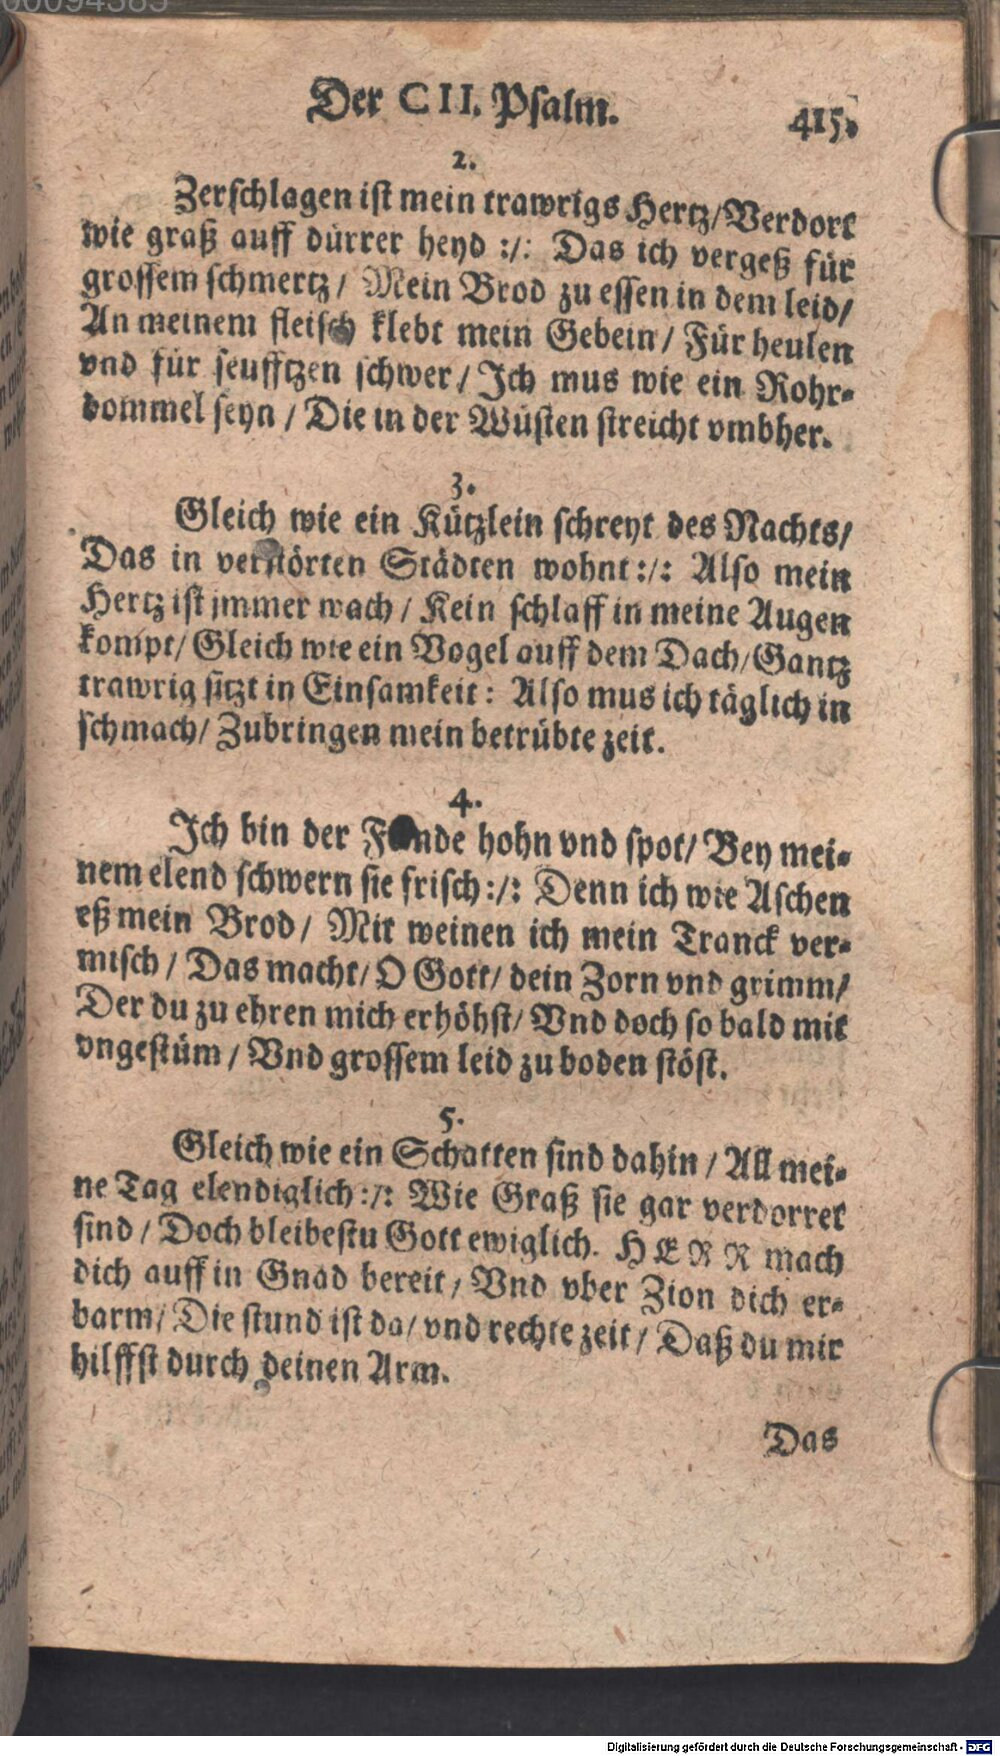 00094385
Der CII. Psalm. 415.
2.
Zerschlagen ist mein trawrigs Hertz/Verdort
wie graß auff dürrer heyd :/: Das ich vergeß für
grossem schmertz/ Mein Brod zu essen in dem leid/
An meinem fleisch klebt mein Gebein/ Für heulen
vnd für seufftzen schwer/ Ich mus wie ein Rohr-
dommel seyn / Die in der Wüsten streicht vmbher.
3.
Gleich wie ein Kützlein schreyt des Nachts/
Das in verstörten Städten wohnt:/: Also mein
Hertz ist jmmer wach/ Kein schlaff in meine Augen
kompt/ Gleich wie ein Vogel auff dem Dach/Gantz
trawrig sitzt in Einsamkeit: Also mus ich täglich in
schmach/ Zubringen mein betrübte zeit.
4.
Ich bin der hohn vnd spot/ Bey mei-
nem elend schwern sie frisch:/: Denn ich wie Aschen
eß mein Brod/ Mit weinen ich mein Tranck ver-
misch/ Das macht/ O Gott/ dein Zorn vnd grimm/
Der du zu ehren mich erhöhst/ Vnd doch so bald mit
vngestüm/ Vnd grossem leid zu boden stöst.
5.
Gleich wie ein Schatten sind dahin / All mei-
ne Tag elendiglich:/: Wie Graß sie gar verdorret
sind / Doch bleibestu Gott ewiglich. HERR mach
dich auff in Gnad bereit, Vnd vber Zion dich er-
barm/ Die stund ist da/ vnd rechte zeit/ Daß du mir
hilffst durch deinen Arm.
Das
Digitalisierung gefördert durch die Deutsche Forschungsgemeinschaft - DFG